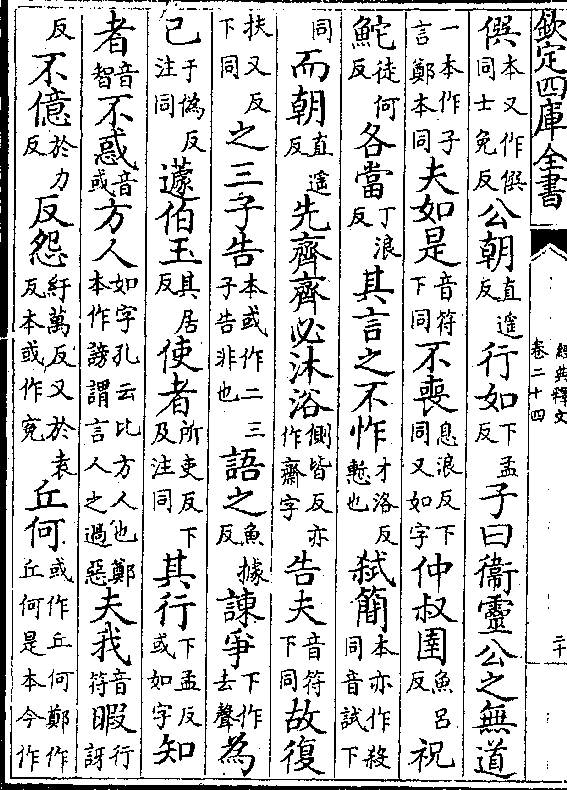 欽定四庫全書
經典釋文
卷二十四
二十
僎本又作僎同士免反公朝直遥反行如下孟反子曰衞靈公之無道
一本作子言鄭本同夫如是音符下同不喪息浪反下同又如字仲叔圉魚呂反祝
鮀徒何反各當丁浪反其言之不怍才洛反慙也弑簡本亦作殺同音試下
同而朝直遥反先齊齊必沐浴側皆反亦作齋字告夫音符下同故復
扶又反下同之三子告本或作二三子告非也語之魚據反諫爭下作去聲為
已于偽反注同蘧伯玉其居反使者所吏反下及注同其行下孟反或如字知
者音智不惑音或方人如字孔云比方人也鄭本作謗謂言人之過惡夫我音符暇行訝
反不億於力反反怨紆萬反又於袁反本或作寃丘何或作丘何鄭作丘何是本今作